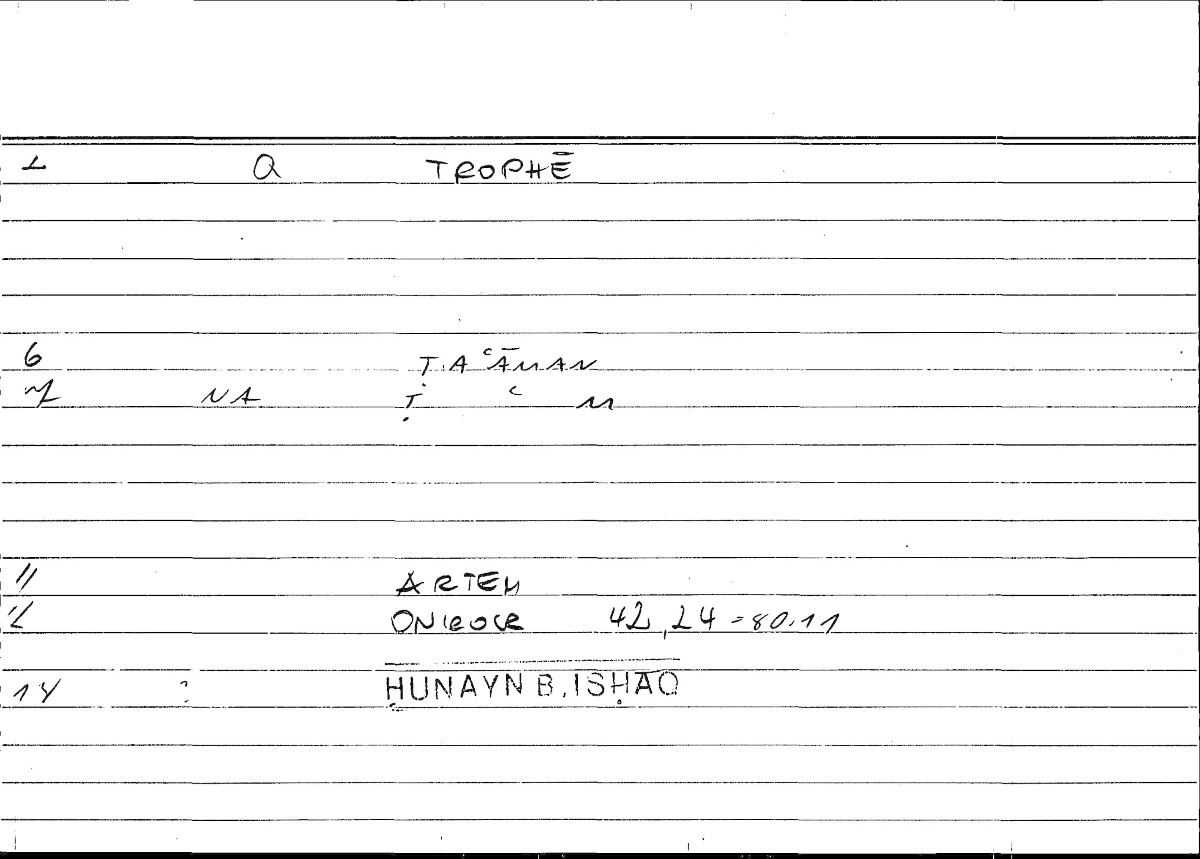 1 Q TROPHĒ
6 ṬAʿĀMAN
7 NA Ṭ ʿ M
11 ARTEM
12 ONIROCR 42,24 = 80.11
14 ? ḤUNAYN B. ISḤĀQ